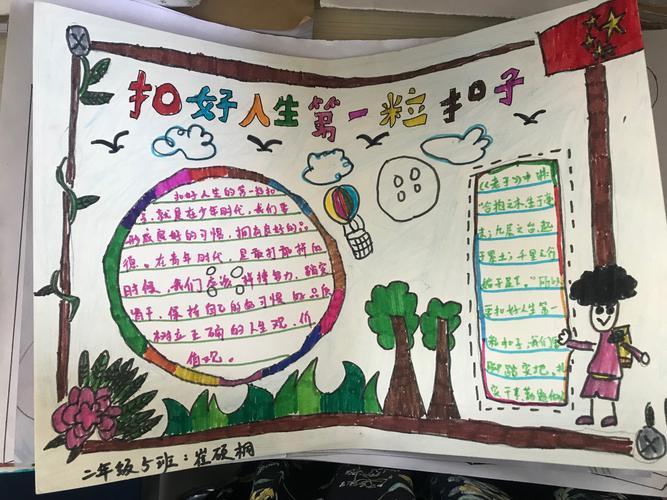 扣好人生第一粒扣子
扣好人生的第一粒扣
子,就是在少年时代,我们要
形成良好的习惯,拥有良好的品
德。在青年时代,是最打部拼的
时候,我们应该 拼搏努力,踏实
肯干,保持自己的良习惯 的品质
树立正确的人生观,价
值观。
《老子》中讲:
"合抱之木生于毫
末;九层之台,起
于累土;千里之行
始于足下。"所以
要扣好人生第一
粒扣子,我们要
脚踏实地,扎
实干事
二年级5班:崔硕桐